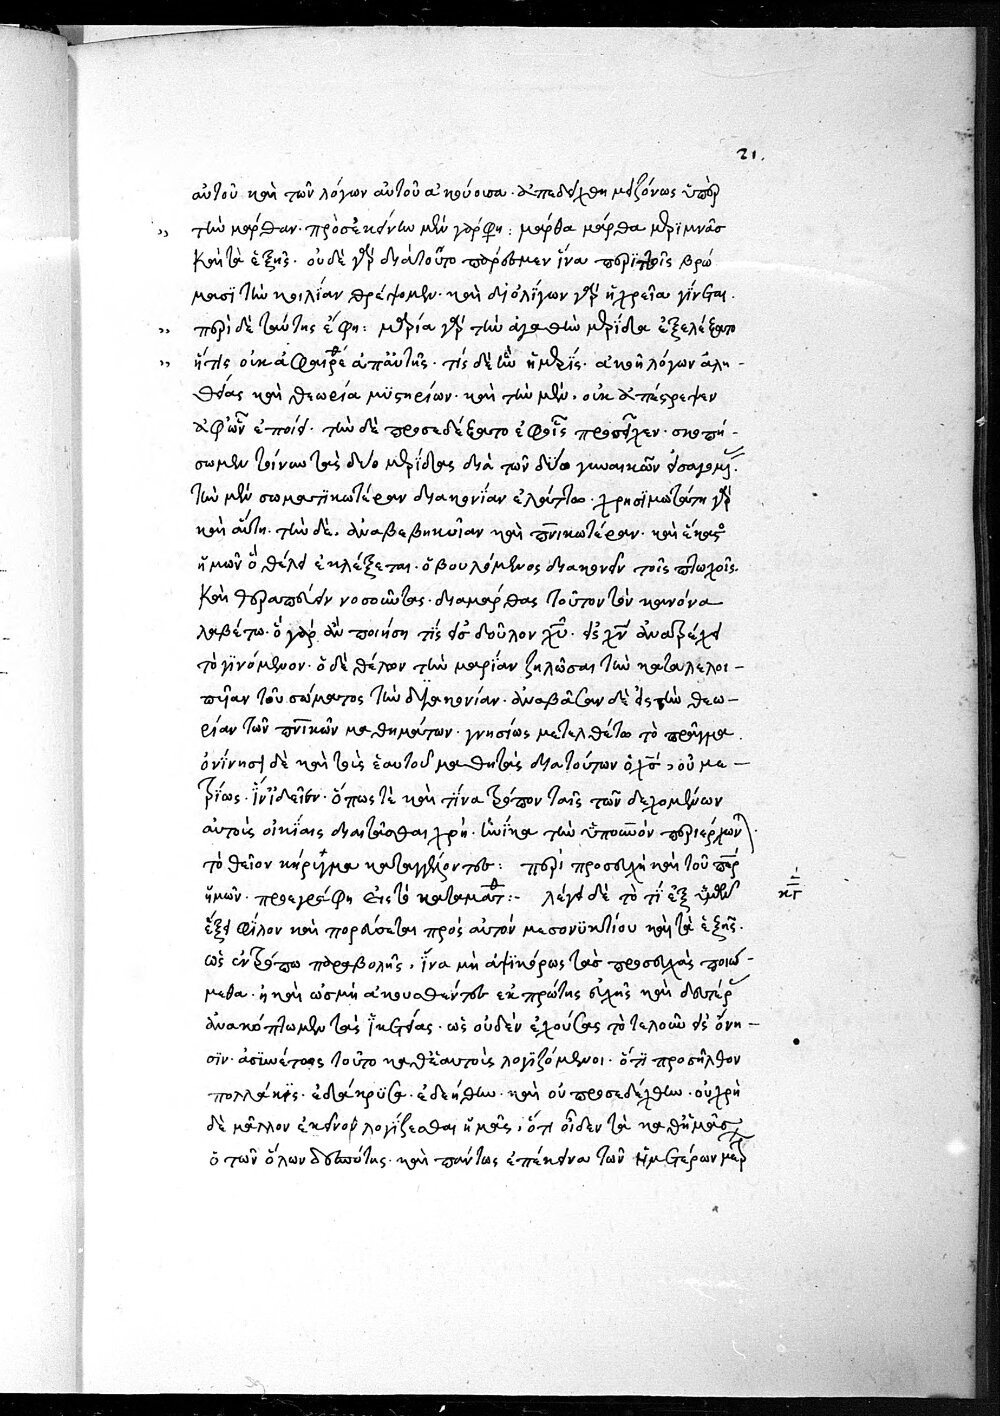 21.
αὐτοῦ καὶ τῶν λόγων αὐτοῦ ἀκούουσα· ἀπεδέχθη μειζόνως ὑπὲρ
τὴν μάρθαν· πρὸς ἐκείνην μὲν γάρ φη: μάρθα μάρθα μεριμνᾶσ
Καὶ τὰ ἑξῆς· οὐδὲ γὰρ διὰ τοῦτο πάρεσμεν ἵνα περὶ τοῖς βρώ
μασϊ τὴν κοιλίαν θρέψομεν· καὶ δι ὀλίγων γὰρ ἡ χρεῖα γίνεται.
περὶ δὲ ταύτης ἔφη: μαρία γὰρ τὴν ἀγαθὴν μερίδα ἐξελέξατο
ἥτις οὐκ ἀφαιρεθ ἀπ αὐτῆς· τίς δὲ ἦν ἡ μερίς· ἀκοὴ λόγων ἀλη-
θείας καὶ θεωρία μϋστηρίων· καὶ τὴν μὲν, οὐκ ἀπέστρεψεν
ἀφ ὧν ἐποίει· τὴν δὲ προσεδέξατο ἐφ οἷς προσεῖχεν· σκοπή-
σωμεν τοίνυν τὰς δύο μερίδας διὰ τῶν δύο γυναικῶν εἰσαγομ.
τὴν μὲν σωματϊκωτέραν διακονίαν ἐλάττω· χρησϊμωτάτη γὰρ
καὶ αὕτη· τὴν δὲ, ἀναβεβηκυῖαν καὶ πνικωτέραν· καὶ ἕκαστο
ἡμῶν ὃ θέλει ἐκλέξεται· ὁ βουλόμενος διακονεῖν τοῖς πτωχοῖς.
Καὶ θεραπεύειν νοσοῦντας· διὰ μάρθας τοῦτον τὸν κανόνα
λαβέτω· ὃ γὰρ ἂν ποιήση τῒς εἰσ δοῦλον χυ· εἰς χν ἀνατρέχει
τὸ γϊνόμενον· ὁ δὲ θέλων τὴν μαρίαν ζηλῶσαι τὴν καταλελοι-
πυῖαν τοῦ σώματος τὴν διακονίαν· ἀναβᾶσαν δὲ εἰς τὴν θεω-
ρίαν τῶν πνϊκῶν μαθημάτων· γνησίως μετελθέτω τὸ πρᾶγμα.
ὀνίνησϊ δὲ καὶ τοὺς ἑαυτοῦ μαθητὰς διὰ τούτων ὁ χσ, οὐ με-
τρίως· ἵν ἰδεῖεν· ὅπως τὲ καὶ τίνα τρόπον ταῖς τῶν δεχομένων
αὐτοὺς οἰκίαις διαιτᾶσθαι χρή· ἡνίκα τὴν ὑπ ουνὸν περιέρχων
τὸ θεῖον κήρυγμα καταγγέλοντες: περὶ προσευχῆ καὶ τοῦ περ
ἡμῶν· προεγράφη εἰς τὸ κατὰ ματθ:- λέγει δὲ τὸ τί ἐξ ὑμῶν
ἕξει φίλον καὶ πορεύσεται πρὸς αὐτὸν μεσονϋκτίου καὶ τὰ ἑξῆς·
κγ
ὡς ἐν τρόπω παραβολῆς, ἵνα μὴ ἁψικόρως τὰσ προσευχὰς ποιώ-
μεθα· ἢ καὶ ὡσ μὴ ἀκουσθέντες ἐκ πρώτης εὐχῆς καὶ δευτέρ
ἀνακόπτωμεν τὰς ἱκεσίας· ὡς οὐδὲν ἐχούσας τὸ τελοῦν εἰς ὄνη-
σϊν· ἀσϋνέτως τοῦτο καθ ἑαυτοὺς λογϊζόμενοι· ὅτϊ προσῆλθον
πολλάκϊς· ἐδάκρϋσα· ἐδεήθην· καὶ οὐ προσεδέχθην· οὐ χρὴ
δὲ μᾶλλον ἐκεῖνο λογίζεσθαι ἡμᾶς, ὅτι οἶδεν τὰ καθ ἡμᾶς
ὁ τῶν ὅλων δεσπότης· καὶ πάντως ἐπέκεινα τῶν ἡμετέρων μετρ